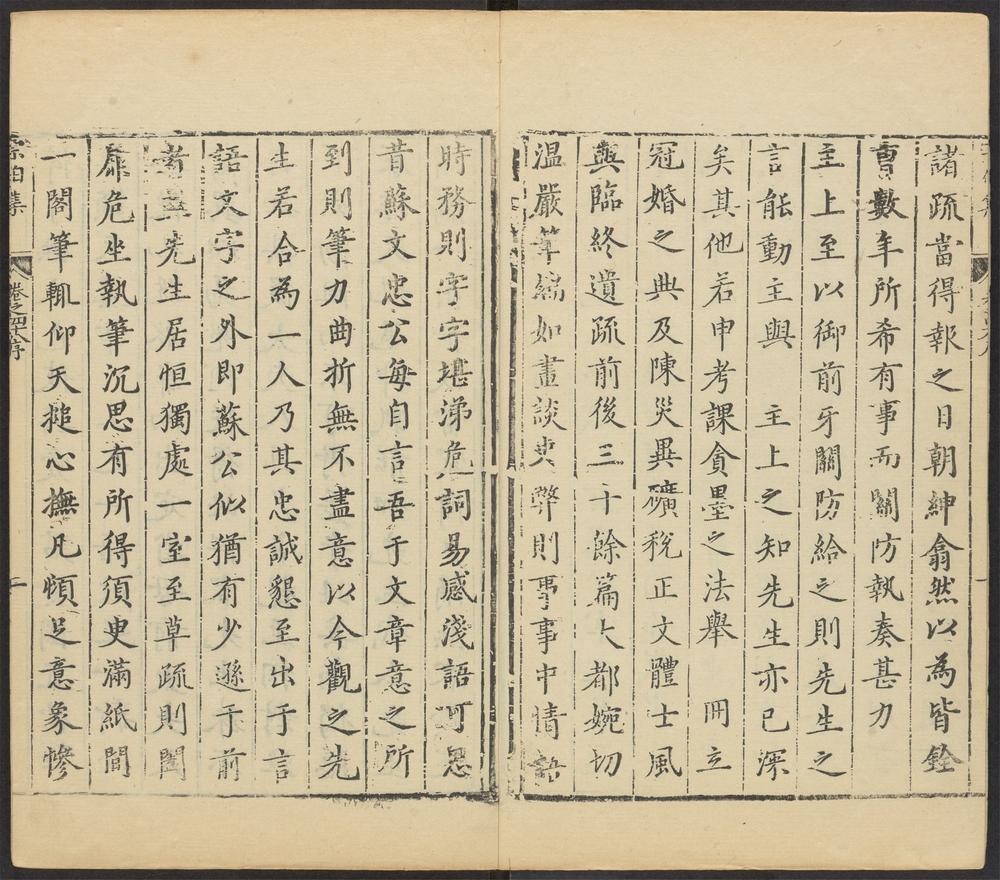 諸疏當得報之日朝紳翕然以為皆銓
曹數年所希有事而關防執奏甚力
主上至以御前牙關防給之則先生之
言能動主與　主上之知先生亦已深
矣其他若申考課貪墨之法舉　冊立
冠婚之典及陳災異礦稅正文體士風
與臨終遺疏前後三十餘篇大都婉切
溫嚴筆端如畫談吏弊則事事中情語
時務則字字堪涕危詞易感淺語可思
昔蘇文忠公每自言吾于文章意之所
到則筆力曲折無不盡意以今觀之先
生若合為一人乃其忠誠懇至出于言
語文字之外即蘇公似猶有少遜于前
者先生居恒獨處一室至草疏則闔
扉危坐執筆沉思有所得須臾滿紙間
一閣筆輒仰天搥心撫几頓足意象慘
宗伯集
卷之四十序